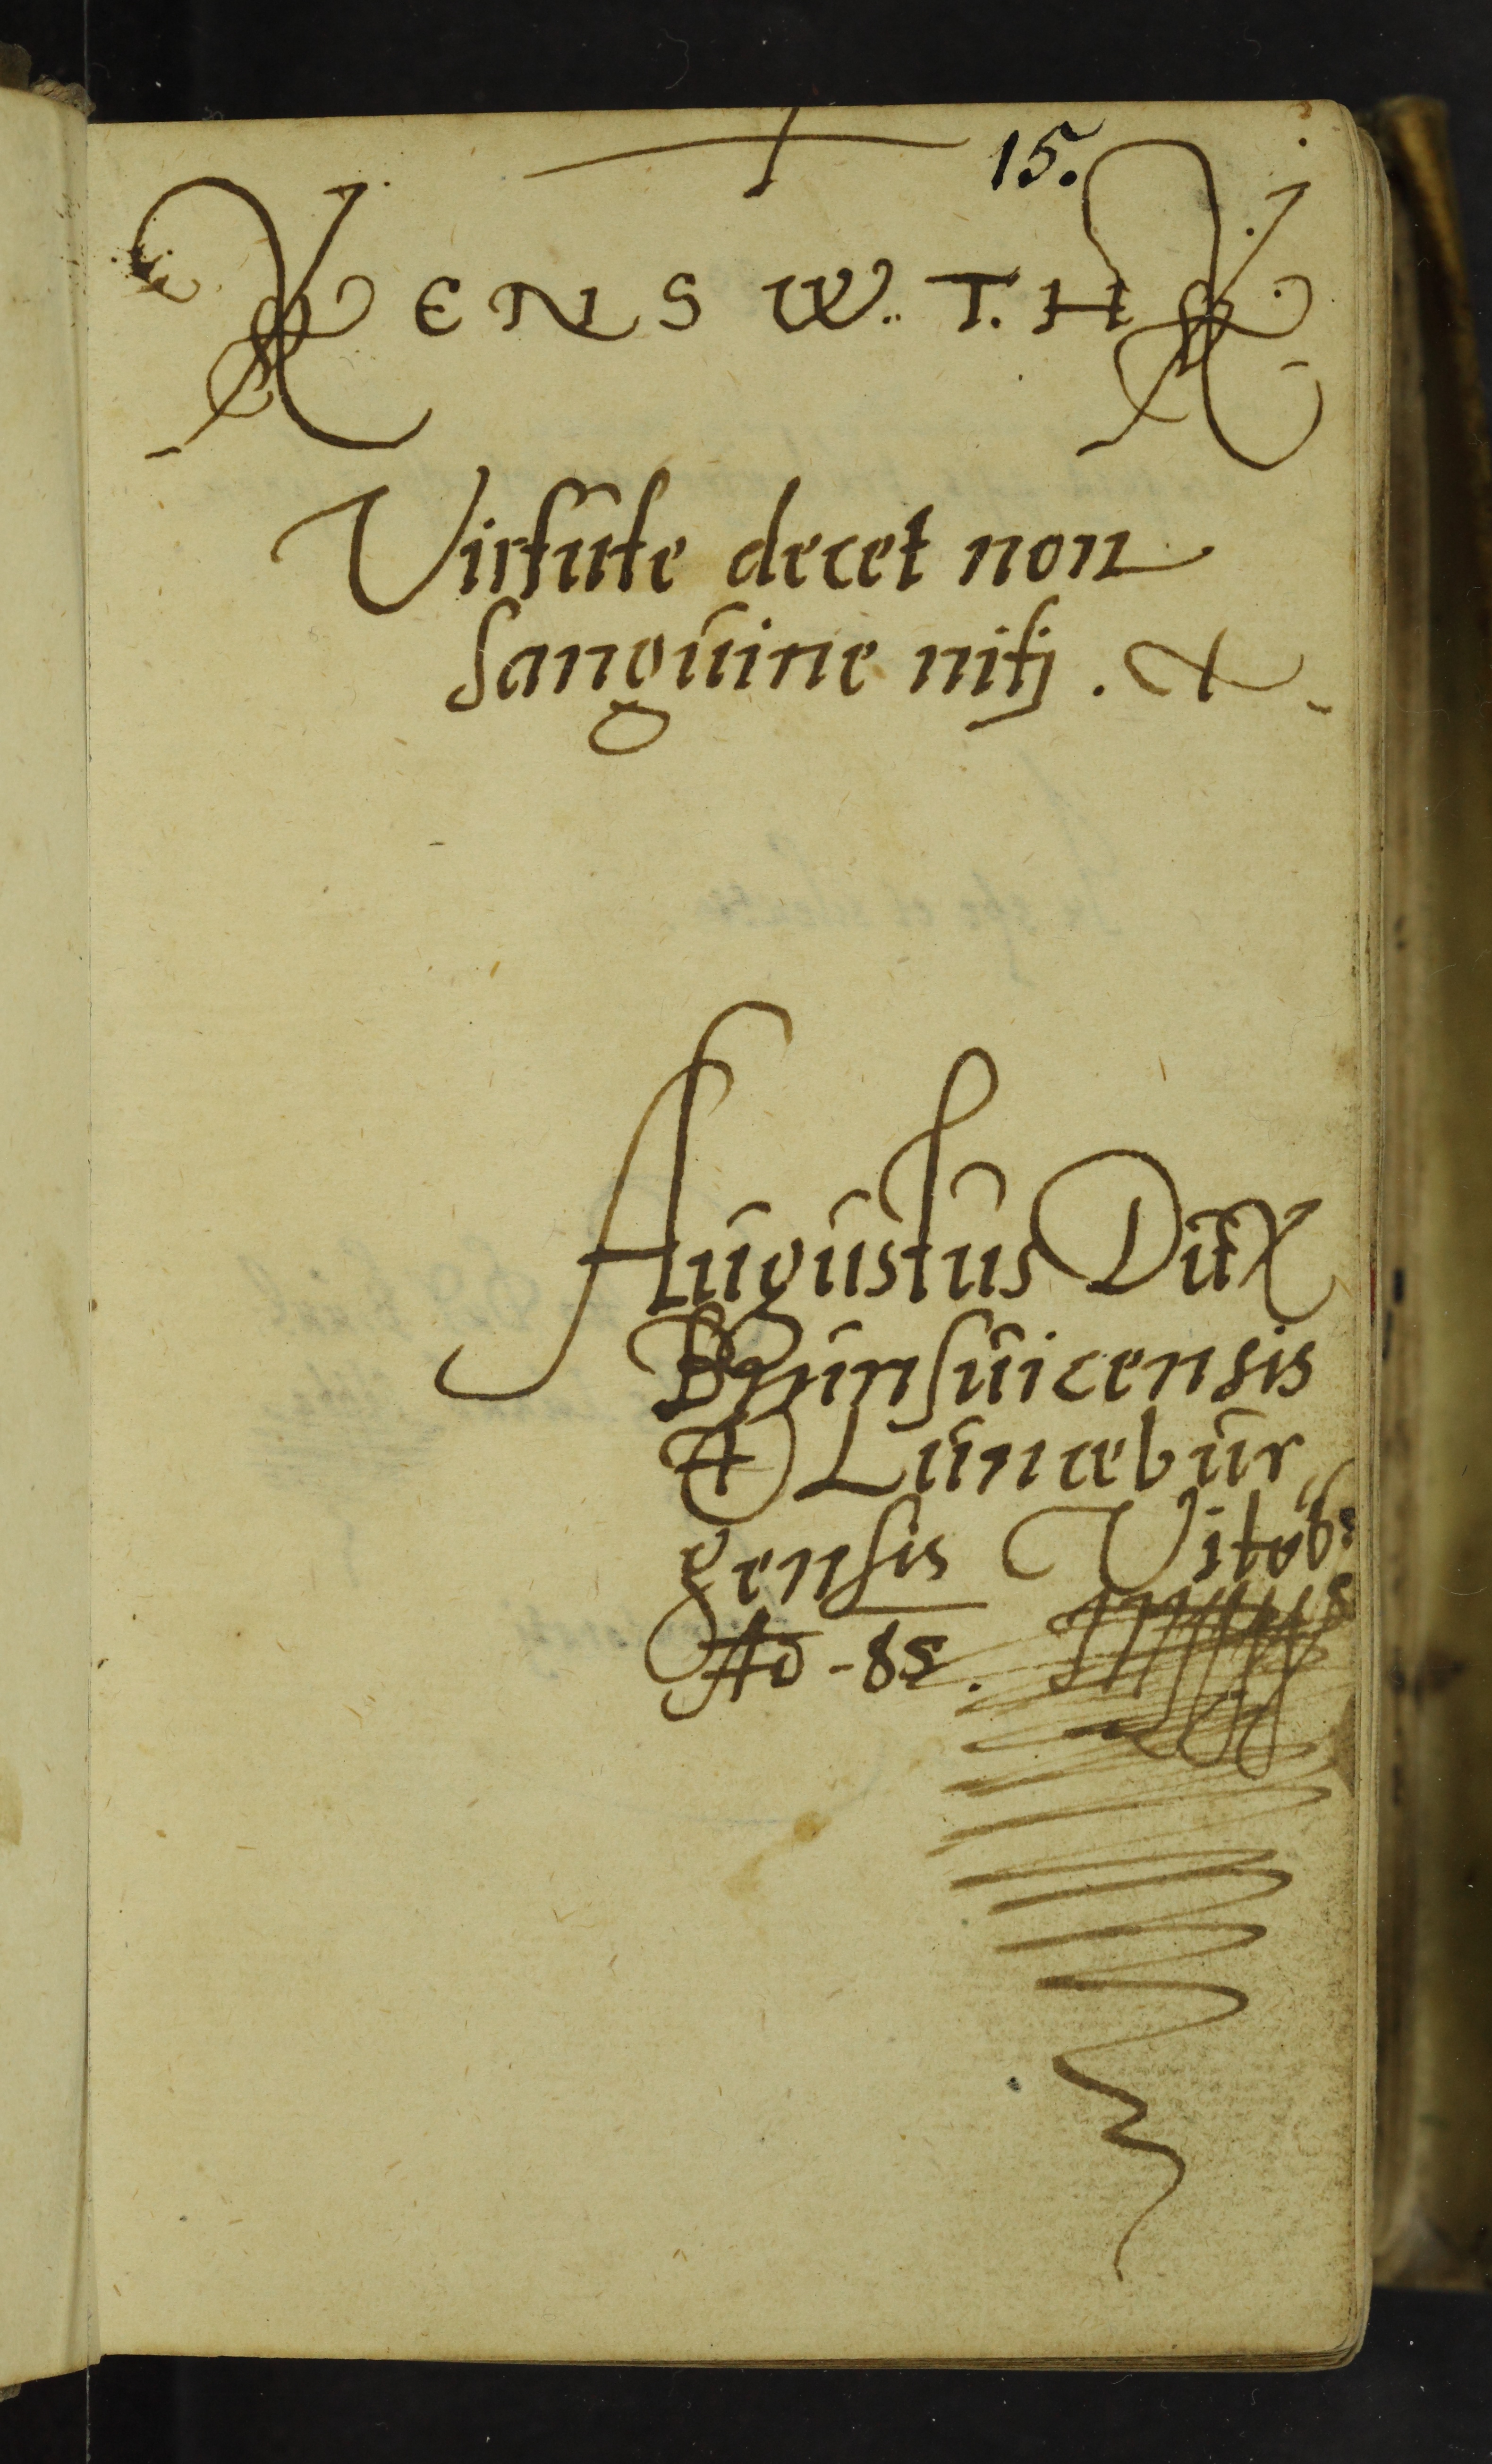 15.
X E N S W. T. H X
Virtute decet non
Sanguine nitj. &
Augustus Dux
Brunsuicensis
& Lunæbur
gensis
Ao - 85.